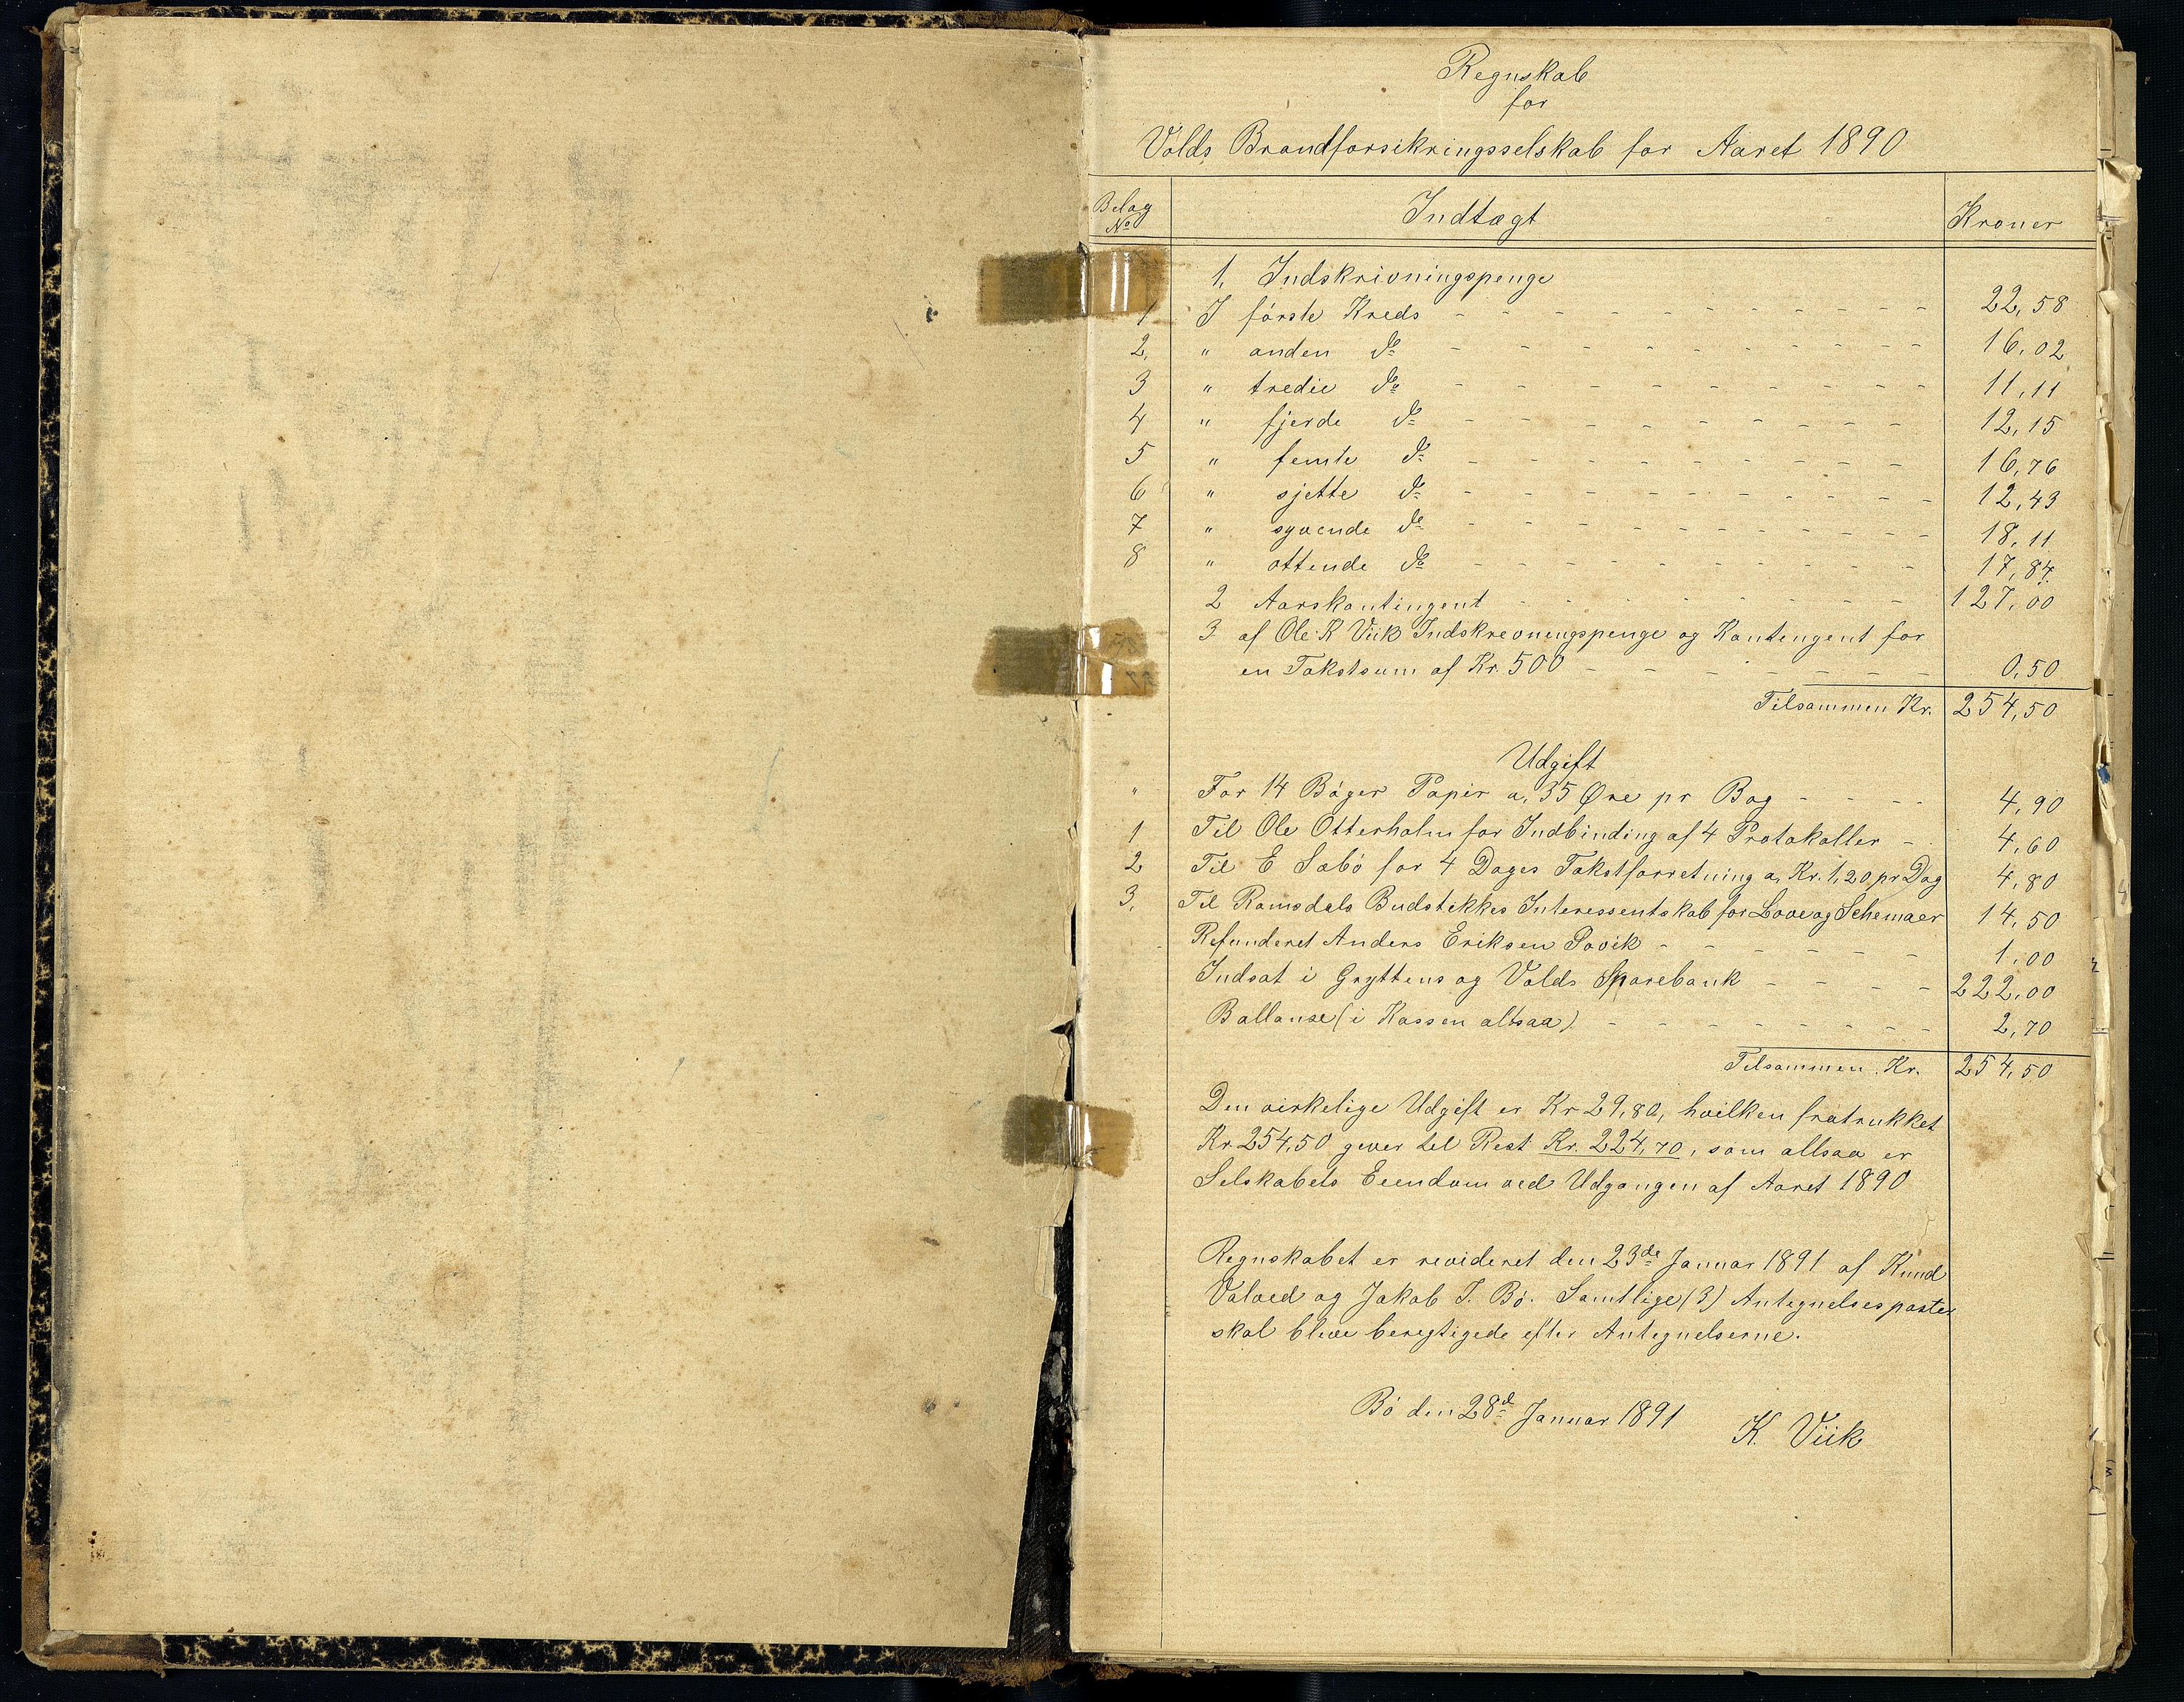 Regnskab
for
Volds Brandforsikringsselskab for Aaret 1890
Belag No Indtægt Kroner
1, Indskrivningspenge
1 I første Kreds - - - - - - - - - - - 22,58
2, " anden do - - - - - - - - - - - 16,02
3 " tredie do - - - - - - - - - - - 11,11
4 " fjerde do - - - - - - - - - - 12,15
5 " femte do - - - - - - - - - - 16,76
6 " sjette do - - - - - - - - - - 12,43
7 " syvende do - - - - - - - - - - 18,11
8 " ottende do - - - - - - - - - - 17,84
2 Aarskontingent - - - - - - - - 127,00
3 af Ole K Viik Indskrevningspenge og Kontingent for
en Takstsum af Kr. 500 - - - - - - - - 0,50
Tilsammen Kr. 254,50
Udgift
" For 14 Bøger Papir a, 35 Øre pr Bog - - - - 4,90
1 Til Ole Otterholm for Indbinding af 4 Protokoller - 4,60
2 Til E Sæbø for 4 Dages Takstforretning a, Kr. 1,20 pr Dag 4,80
3, Til Romsdals Budstikkes Interessentskab for Love og Schemaer 14,50
Refunderet Anders Eriksen Søvik - - - - - - 1,00
Indsat i Gryttens og Volds Sparebank - - - - 222,00
Ballanse (i Kassen altsaa) - - - - - - - - 2,70
Tilsammen Kr. 254,50
Den virkelige Udgift er Kr 29,80, hvilken fratrukket
Kr. 254,50 giver til Rest Kr. 224,70, som altsaa er
Selskabets Eiendom ved Udgangen af Aaret 1890
Regnskabet er revideret den 23de Januar 1891 af Knud
Valved og Jakob J. Bø. Samtlige (3) Antegnelsesposter
skal blive berigtigede efter Antegnelserne.
Bø den 28de Januar 1891
K. Viik